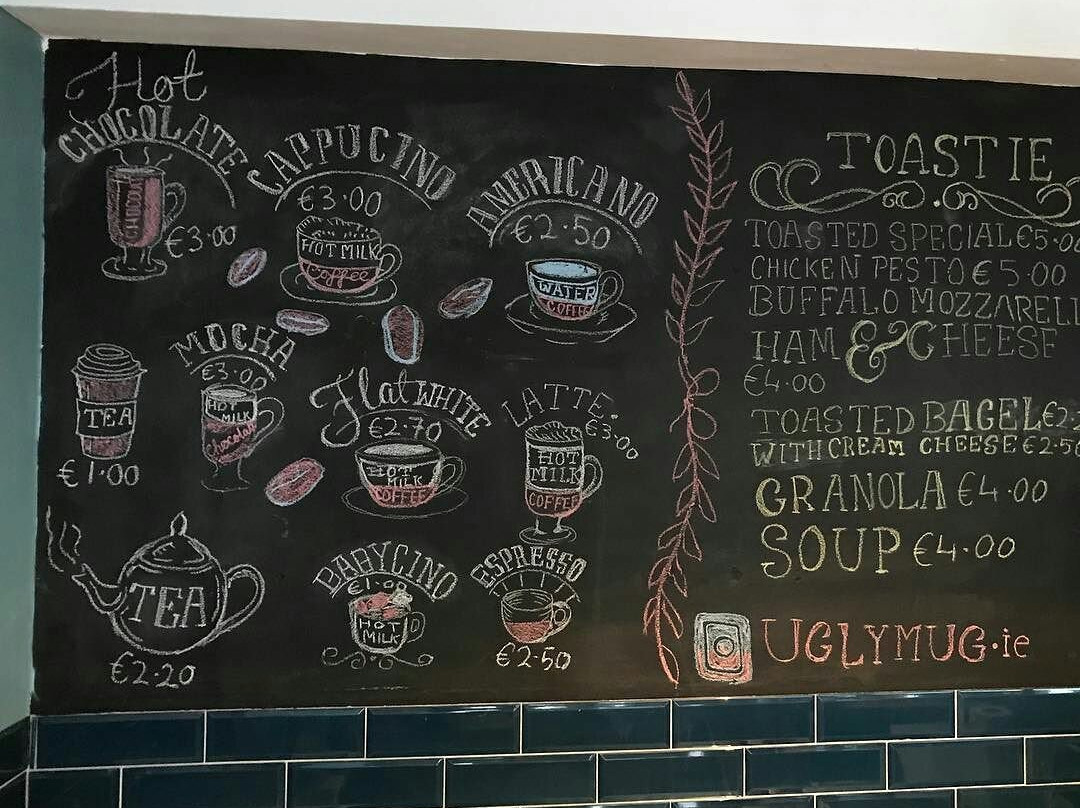 Hot
CHOCOLATE
CHOCOLAT
€3.00
CAPPUCINO
€3.00
HOT MILK
Coffee
AMERICANO
€2.50
WATER
COFFEE
TEA
€1.00
MOCHA
€3.00
HOT
MILK
Chocolate
Flat WHITE
€2.70
HOT
MILK
COFFEE
LATTE.
€3.00
HOT
MILK
COFFEE
TEA
€2.20
BABYCINO
€1.00
HOT
MILK
ESPRESSO
€2.50
TOASTIE
TOASTED SPECIAL €5.00
CHICKEN PESTO €5.00
BUFFALO MOZZARELL
HAM & CHEESE
€4.00
TOASTED BAGEL €2.
WITH CREAM CHEESE €2.50
GRANOLA €4.00
SOUP €4.00
UGLYMUG.ie